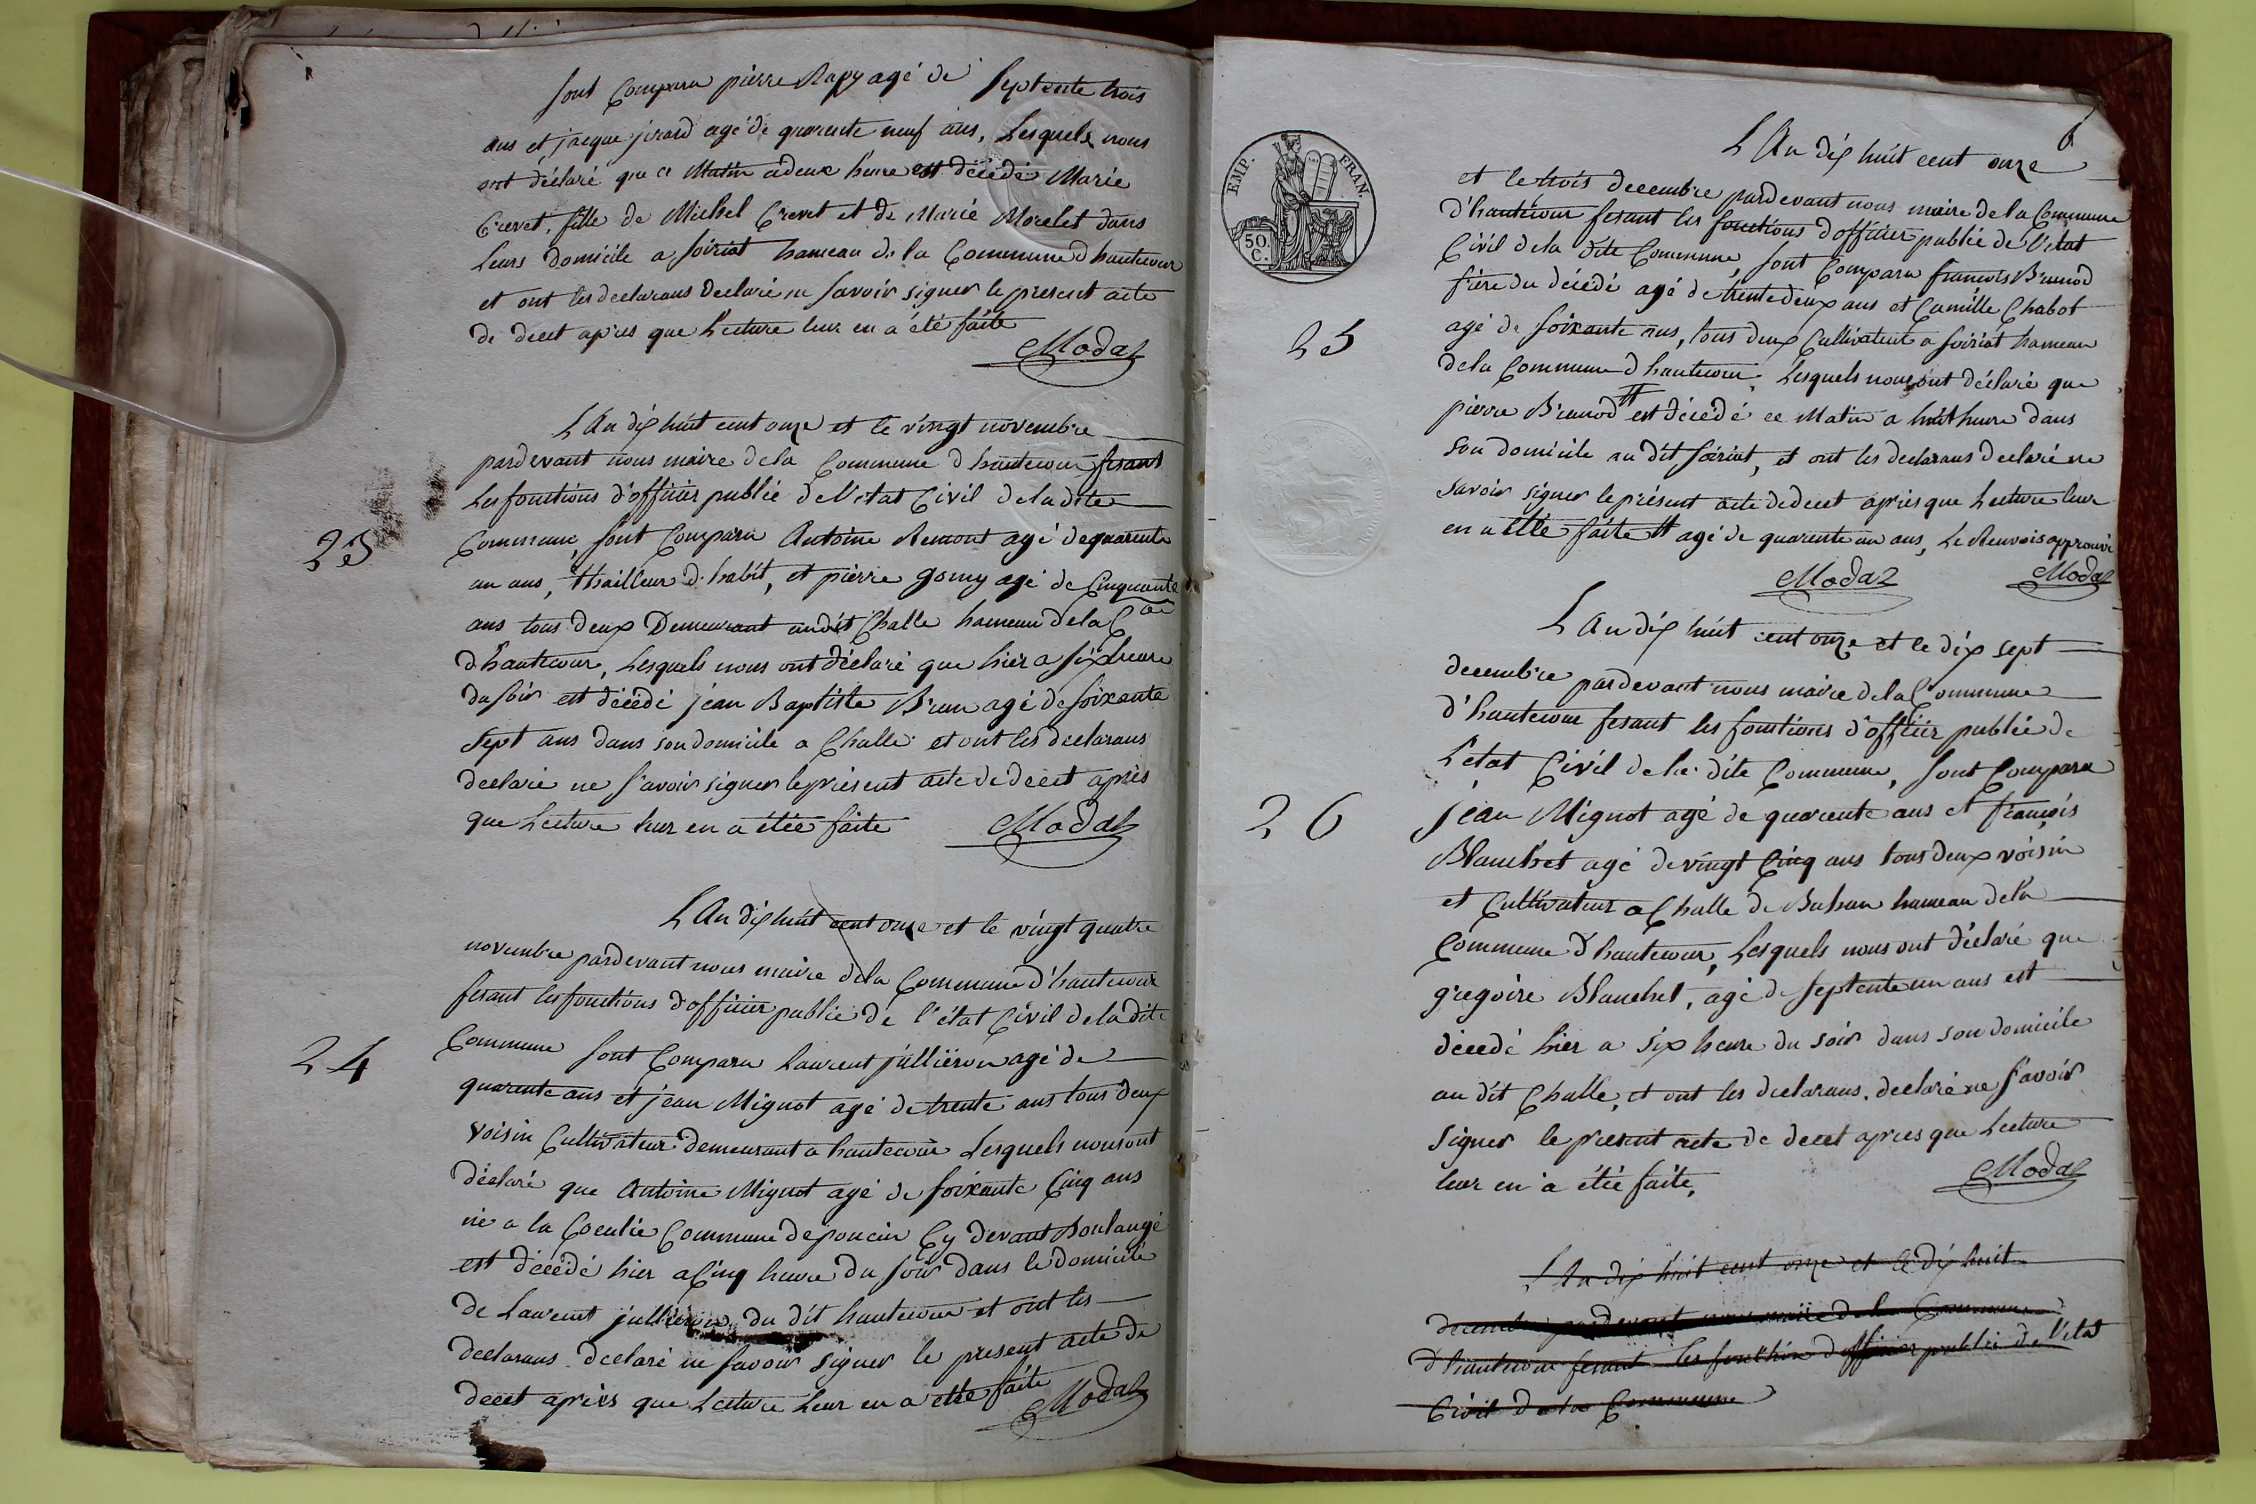 sont Comparu pierre Rapy agé de Septente trois
ans et jacque jirard agé de quarente neuf ans, Lesquels nous
ont déclaré que ce Matin a deux heure est décédé Marie
Crevet, fille de Michel Crevet et de Marie Morelet dans
Leurs domicile a soiriat hameau de la Commune d'hautecour
et ont les declarans declaré ne savoir signer le present acte
de decet aprés que Lecture leur en a été faite
Modas
23
L'An dix huit cent onze et le vingt novembre
pardevant nous maire de la Commune d'hautecour fesant
Les fonctions d'officier publié de l'etat Civil de la dite
Commune, sont Comparu Antoine Remont agé de quarente
un ans, thailleur d'habit, et pierre gomy agé de Cinquante
ans tous deux Demeurant au dit Challe hameau de la Cne
d'hautecour, Lesquels nous ont déclaré que hier a six heure
du soir est décédé jean Baptiste Brun agé de soixante
Sept ans dans son domicile a Challe et ont les declarans
declaré ne savoir signer le présent acte de decet aprés
que Lecture leur en a étée faite
Modas
24
L'An dix huit cent onze et le vingt quatre
novembre pardevant nous maire de la Commune d'hautecour
fesant les fonctions d'officier publié de l'état Civil de la dite
Commune sont Comparu Laurent jullieron agé de
quarente ans et jean Mignot agé de trente ans tous deux
voisin Cultivateur demeurant a hautecour Lesquels nous ont
déclaré que Antoine Mignot agé de soixante Cinq ans
né a la Commune de poncin Cy devant Boulangé
est décédé hier a Cinq heure du soir dans le domicile
de Laurent jullieron du dit hautecour et ont les
declarans declaré ne savoir signer le present acte de
decet aprés que Lecture Leur en a etté faite
Modas
6
EMP. FRAN.
50 C.
25
L'An dix huit cent onze
et le trois decembre pardevant nous maire de la Commune
d'hautecour fesant les fonctions d'officier publié de l'etat
Civil de la dite Commune, sont Comparu francois Brunod
frère du décédé agé de trente deux ans et Camille Chabot
agé de soixante ans, tous deux Cultivateur a soiriat hameau
de la Commune d'hautecour, Lesquels nous ont déclaré que
pierre Brunod # est décédé ce Matin a huit heure dans
son domicile au dit soiriat, et ont les declarans declaré ne
savoir signer le présent acte de decet aprés que Lecture leur
en a été faite # agé de quarente un ans, Le Renvois approuvé
Modas Modas
26
L'An dix huit cent onze et le dix sept
decembre pardevant nous maire de la Commune
d'hautecour fesant les fonctions d'officier publié de
L'etat Civil de la dite Commune, sont Comparu
jean Mignot agé de quarente ans et françois
Blanchet agé de vingt Cinq ans tous deux voisin
et Cultivateur a Challe de Buhan hameau de la
Commune d'hautecour, Lesquels nous ont déclaré que
grégoire Blanchet, agé de septente un ans est
décédé hier a six heure du soir dans son domicile
au dit Challe, et ont les declarans declaré ne savoir
signer le present acte de decet aprés que Lecture
leur en a étée faite,
Modas
L'An dix huit cent onze et le dix huit
decembre pardevant nous maire de la Commune
d'hautecour fesant les fonction d'officier publié de l'etat
Civil de la Commune